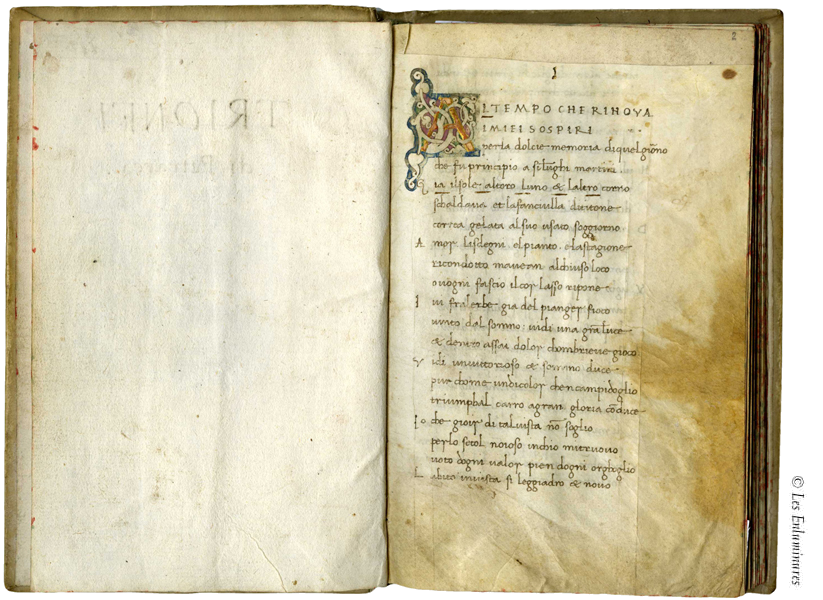 2
1
L TEMPO CHE RINOVA
I MIEI SOSPIRI
per la dolcie memoria di quel giorno
che fu principio a sì lunghi martiri
G ia il sole al toro luno & laltro corno
schaldava et la fanciulla di titone
correa gelata al suo usato soggiorno
A mor li sdegni el pianto e la stagione
ricondotto maveano al chiuso loco
ovogni fascio il cor lasso ripone
I vi fra lerbe gia del pianger fioco
vinto dal somno vidi una gran luce
& dentro assai dolor chon brieve gioco
V idi un victorioso & sommo duce
pur chome un di color chen campidoglio
triumphal carro a gran gloria conduce
Io che gioir di tal vista non soglio
per lo secol noioso in chio mi truovo
voto dogni valor pien dogni orghoglio
L abito in vista sì leggiadro & novo
© Les Enluminures